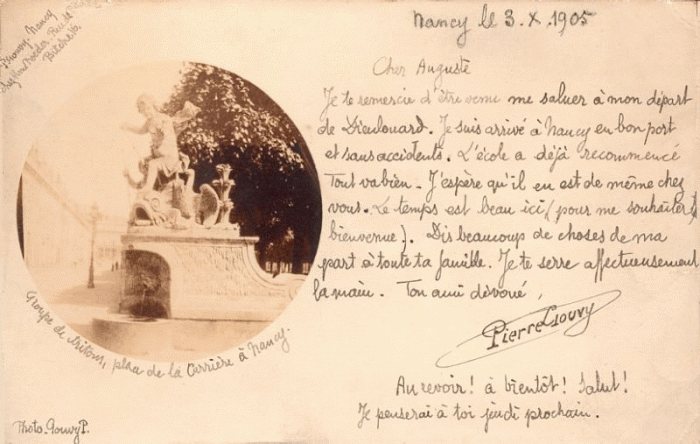 Nancy
Nancy le 3. X. 1905
Cher Auguste
Je te remercie d'être venu me saluer à mon départ
de Dieulouard. Je suis arrivé à Nancy en bon port
et sans accidents. L'école a déjà recommencé
Tout va bien. J'espère qu'il en est de même chez
vous. Le temps est beau ici (pour me souhaiter)
bienvenue). Dis beaucoup de choses de ma
part à toute ta famille. Je te serre affectueusement
la main. Ton ami dévoué,
Pierre Gouvy
Au revoir! à bientôt! Salut!
Je penserai à toi jeudi prochain.
Groupe de tritons, place de la Carrière à Nancy.
Photo. Gouvy P.